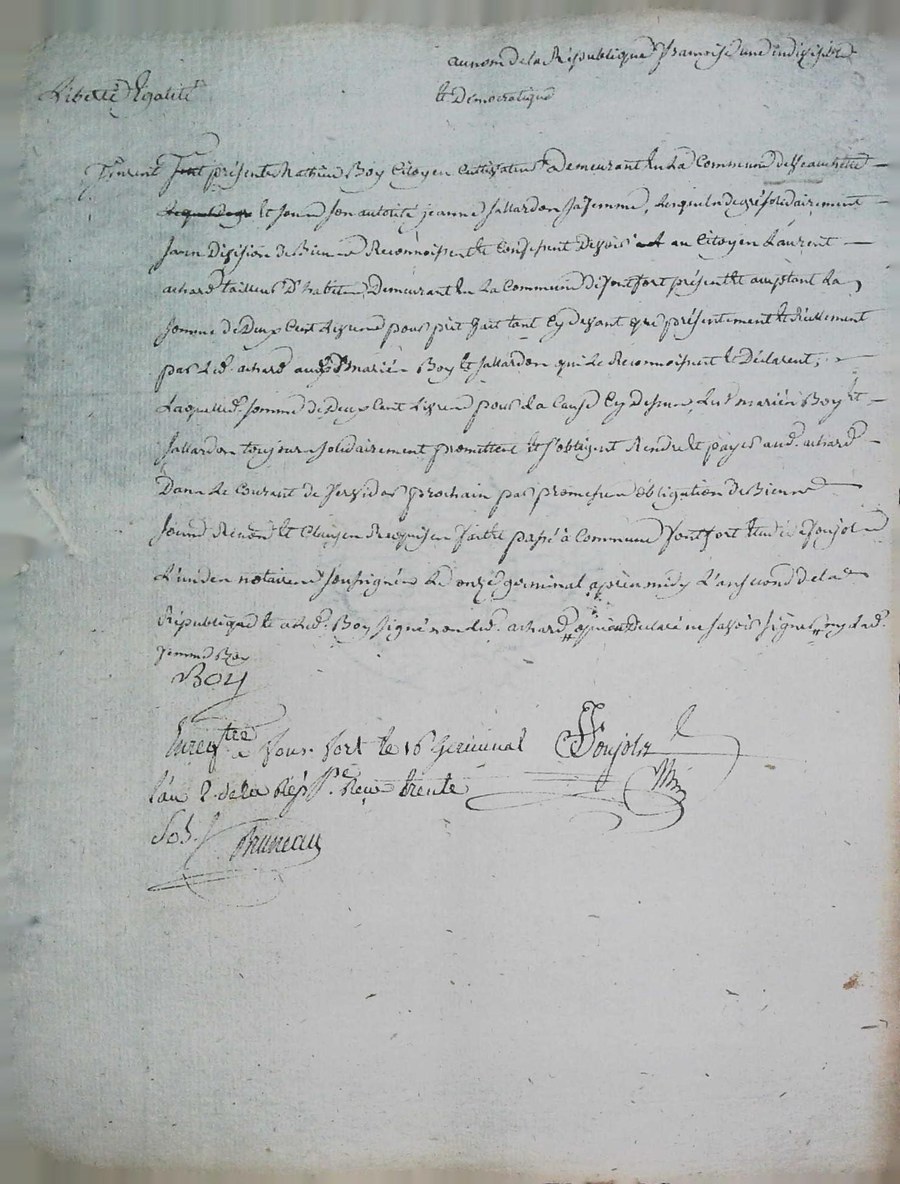 au nom de la République française une indivisible
Liberté Égalité et Démocratique
furent présents Mathieu Boy Citoyen Cultivateur Demeurant en la Commune de Veauchette
et sous son autorité jeanne jallardon sa femme, lesquels de gré solidairement
sans Division de Biens Reconnoissent et Confessent Devoir au Citoyen Laurent
achard tailleur D'habits Demeurant en la Commune de fontfort présent et acceptant La
somme de Deux Cent Livres pour prêt fait tant Cy devant que présentement et Réellement
par Led. achard auxd. Mariés Boy et jallardon qui Le Reconnoissent et Déclarent,
Laquelle d. somme de Deux Cent Livres pour La Cause Cy Dessus, Les d. mariés Boy et
jallardon toujours solidairement promettent et s'obligent Rendre et payer aud. achard
Dans Le Courant de prochain par promesse obligation de Biens
soumis Renon. et Clauses Requises fait et passé à Commune fontfort Etude Ponjols
L'un des notaires soussignés Le onze germinal après midy L'an second de la
République et a Led. Boy signé non led. achard Declaré ne savoir signer ny lad.
femme Boy
Boy
Enregtré à fonfort le 16 Germinal Ponjols
l'an 2. de la Rép. Reçu trente
Sols. Bruneau